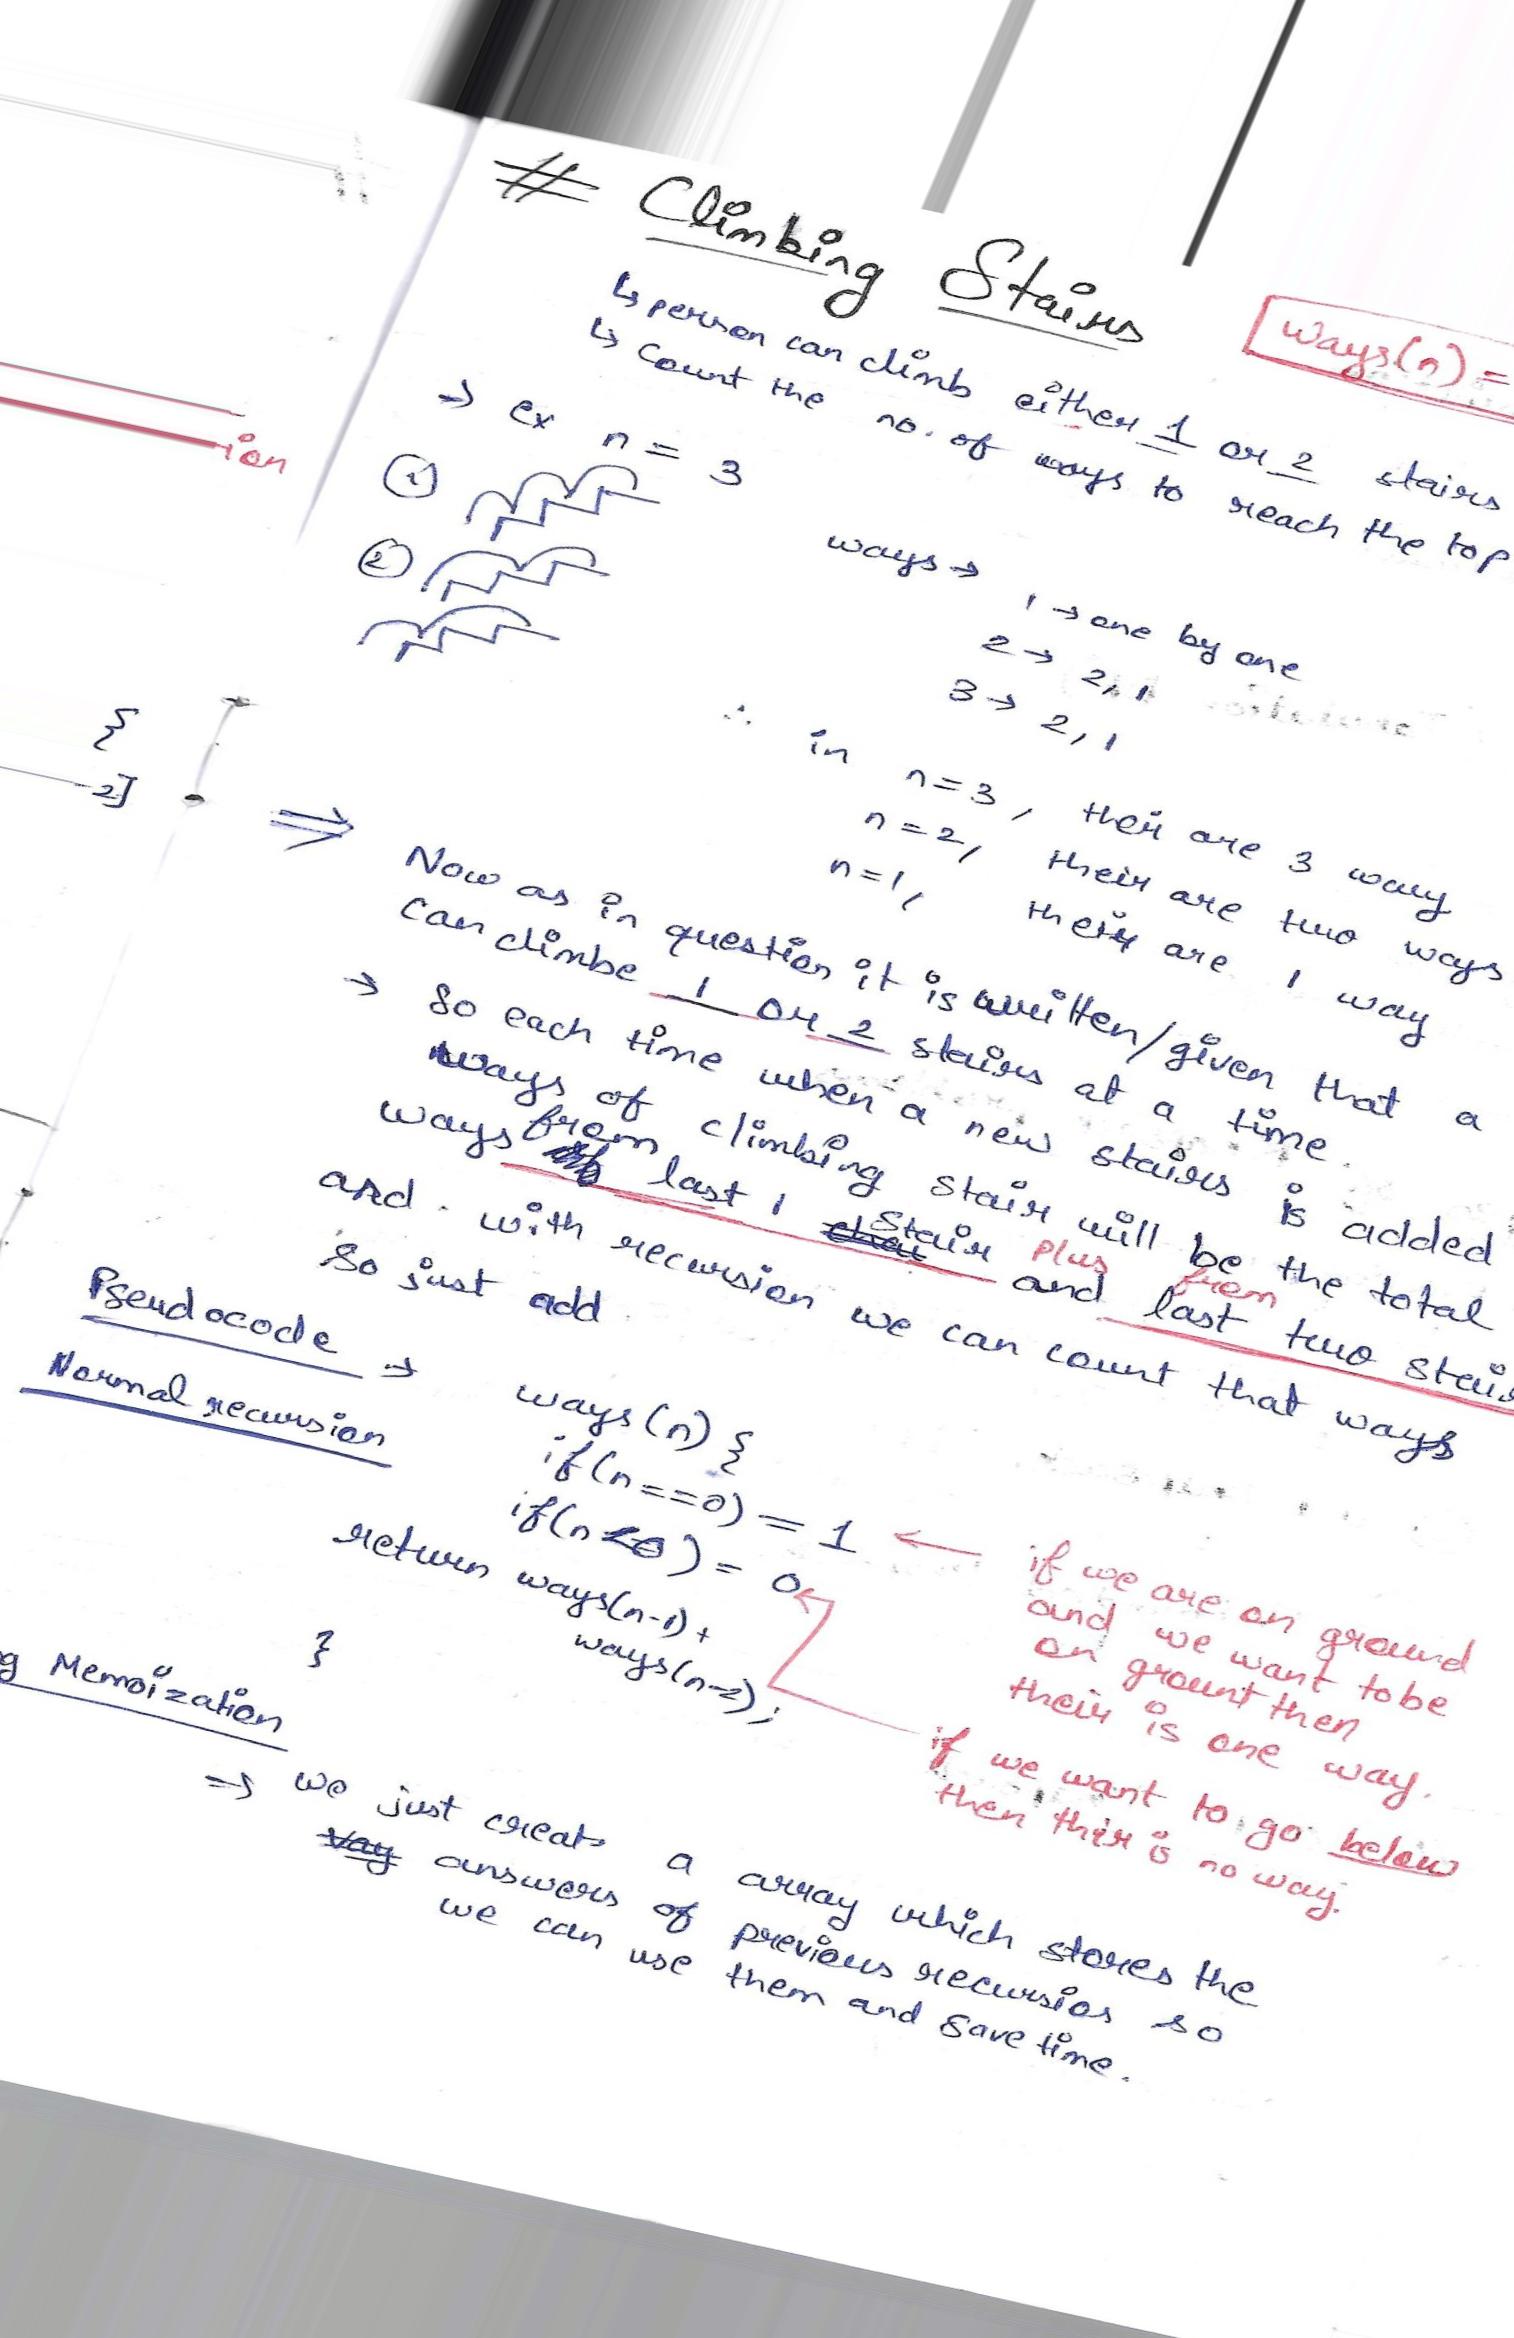 # Climbing Stairs
ways(n) =
↳ person can climb either 1 or 2 stairs
↳ Count the no. of ways to reach the top
→ ex n = 3
①
②
ways → 1 → one by one
2 → 2, 1
3 → 2, 1
∴ in n=3, their are 3 way
n=2, their are two ways
n=1, their are 1 way
ion
{
-2]
⇒ Now as in question it is written/given that a
can climbe 1 or 2 stairs at a time.
→ So each time when a new stairs is added
ways of climbing stair will be the total
ways from last 1 stair plus and from last two stai
and. with recursion we can count that ways
so just add
Pseudocode →
Normal recursion
ways(n) {
if(n==0) = 1 ← if we are on ground
and we want to be
on grount then
their is one way.
if(n<0) = 0
return ways(n-1) +
ways(n-2);
}
if we want to go below
then thir is no way.
g Memoization
⇒ we just creat a array which stores the
answers of previous recursios so
we can use them and save time.